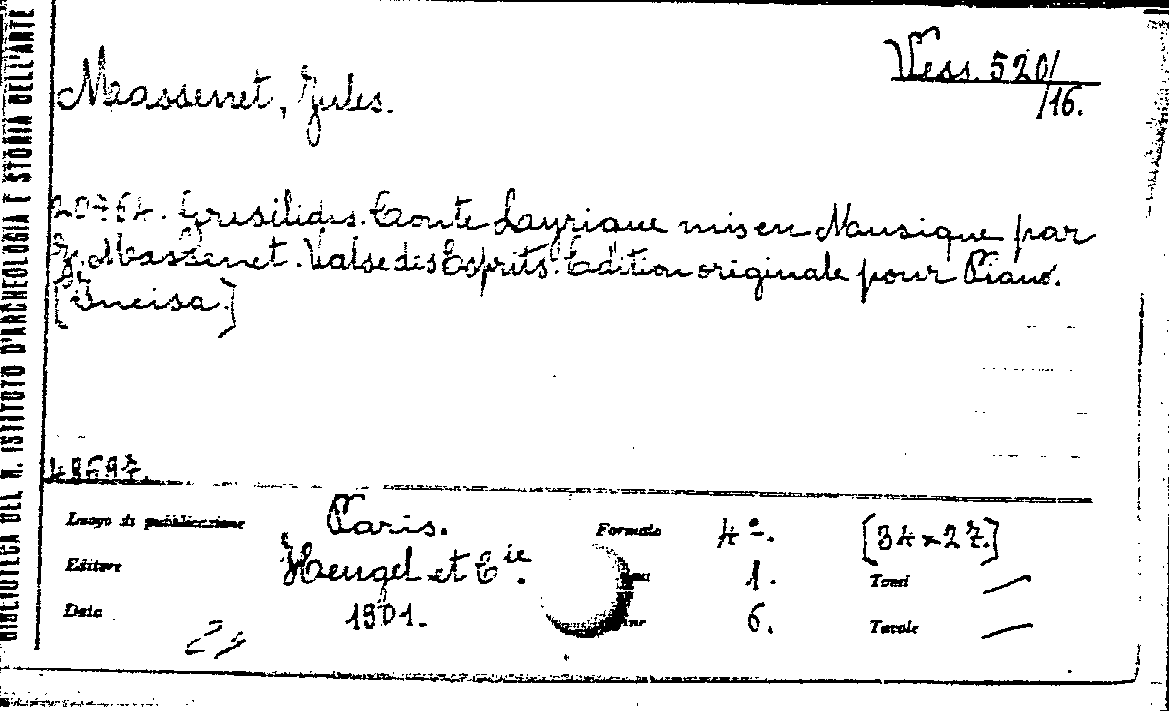 BIBLIOTECA DEL R. ISTITUTO D'ARCHEOLOGIA E STORIA DELL'ARTE
Massenet, Jules.
Vess. 520/
/16.
20764. Griselidis. Conte Layrique mis en Mausique par
J. Massenet. Valse des Esprits. Edition originale pour Piano.
[Incisa.]
48687.
Luogo di pubblicazione Paris. Formato 4º. [34×27.]
Editore Heugel et Cie. 1. Tomi —
Data 1901. 6. Tavole —